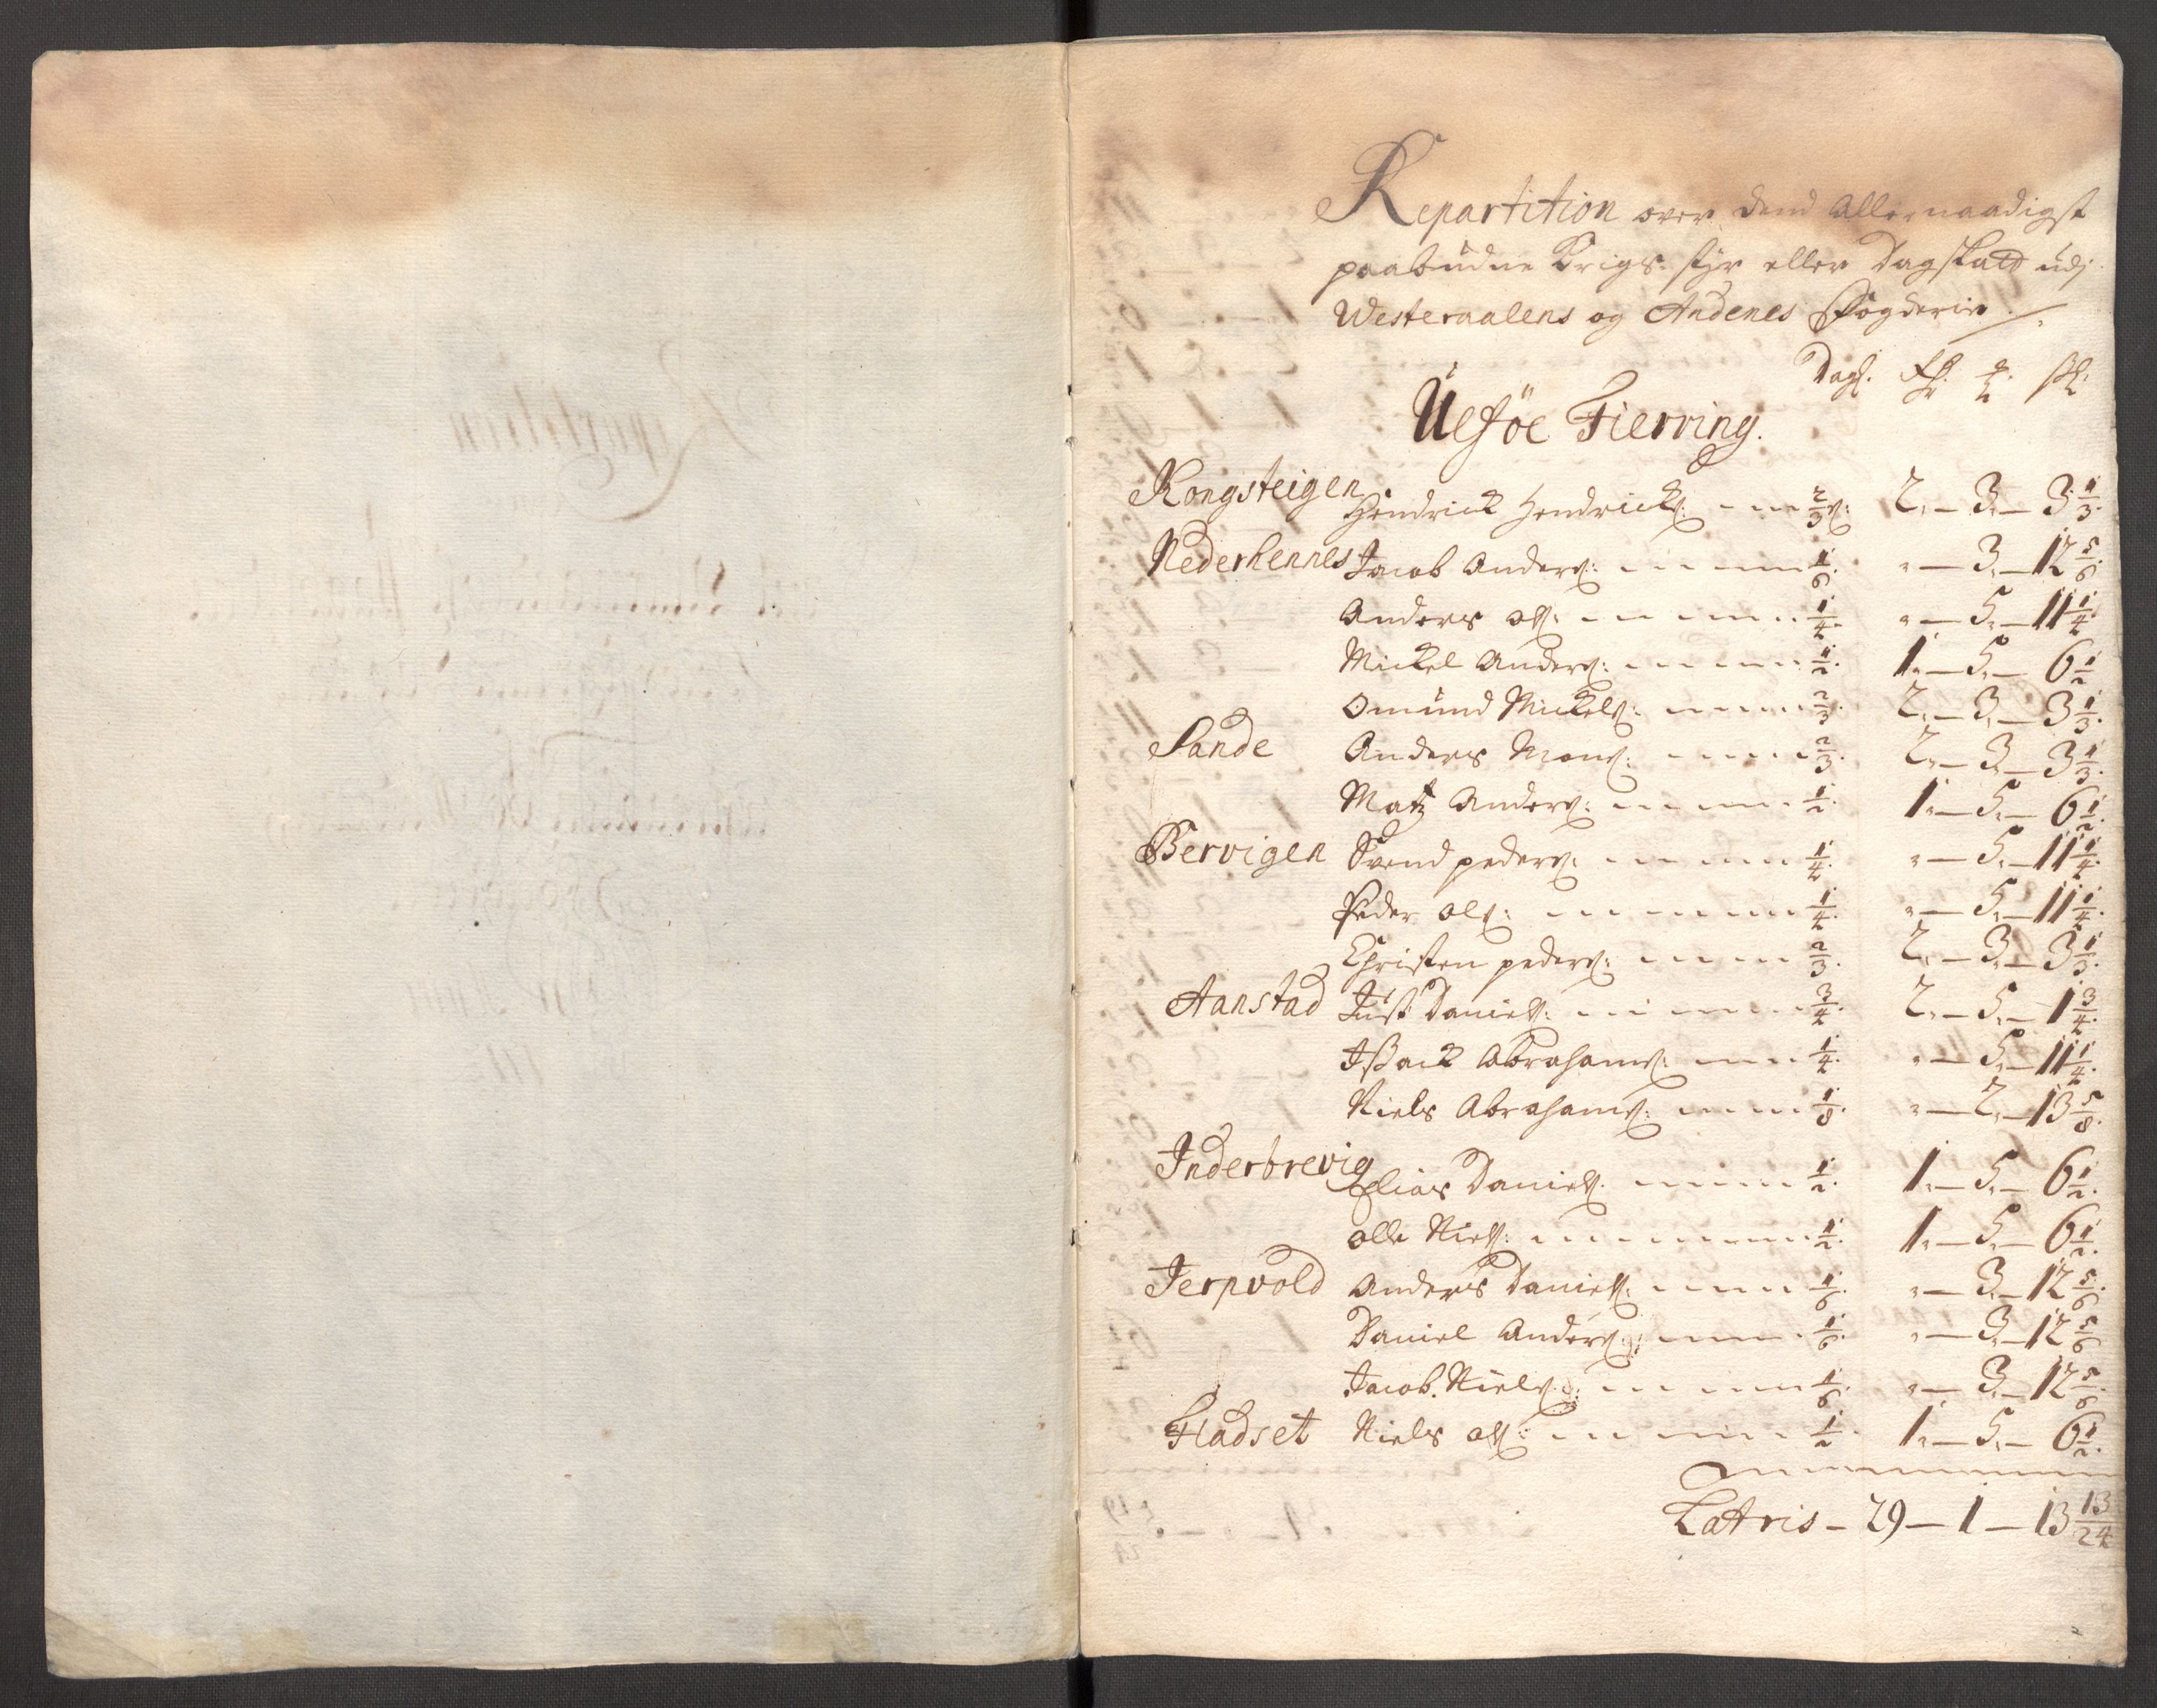 Repartition over dend Allernaadigst
paabudne Krigs-styr eller Dagskatt udj
Westeraalens og Andenes Fogderie
Dags. Rdr. Ort. Sk.
Ulføe Fierring.
Kongsteigen Hendrick Hendricks: 2/3 s: 2 - 3 - 3 1/3
Nederhennes Jacob Anders: 1/6 " - 3 - 12 5/6
Anders Ols: 1/4 " - 5 - 11 1/4
Mickel Anders: 1/2 1 - 5 - 6 1/2
Omund Mickels: 2/3 2 - 3 - 3 1/3
Sande Anders Mons: 2/3 2 - 3 - 3 1/3
Matz Anders: 1/2 1 - 5 - 6 1/2
Bervigen Svend peders: 1/4 " - 5 - 11 1/4
Peder Ols: 1/4 " - 5 - 11 1/4
Christen peders: 2/3 2 - 3 - 3 1/3
Aanstad Just Daniels: 3/4 2 - 5 - 1 3/4
Jssack Abrahams: 1/4 " - 5 - 11 1/4
Niels Abrahams: 1/8 " - 2 - 13 5/8
Inderbrevig Elias Daniels: 1/2 1 - 5 - 6 1/2
Olle Niels: 1/2 1 - 5 - 6 1/2
Jerpvold Anders Daniels: 1/6 " - 3 - 12 5/6
Daniel Anders: 1/6 " - 3 - 12 5/6
Jacob Niels: 1/6 " - 3 - 12 5/6
Fladset Niels Ols: 1/2 1 - 5 - 6 1/2
Latris - 29 - 1 - 13 13/24